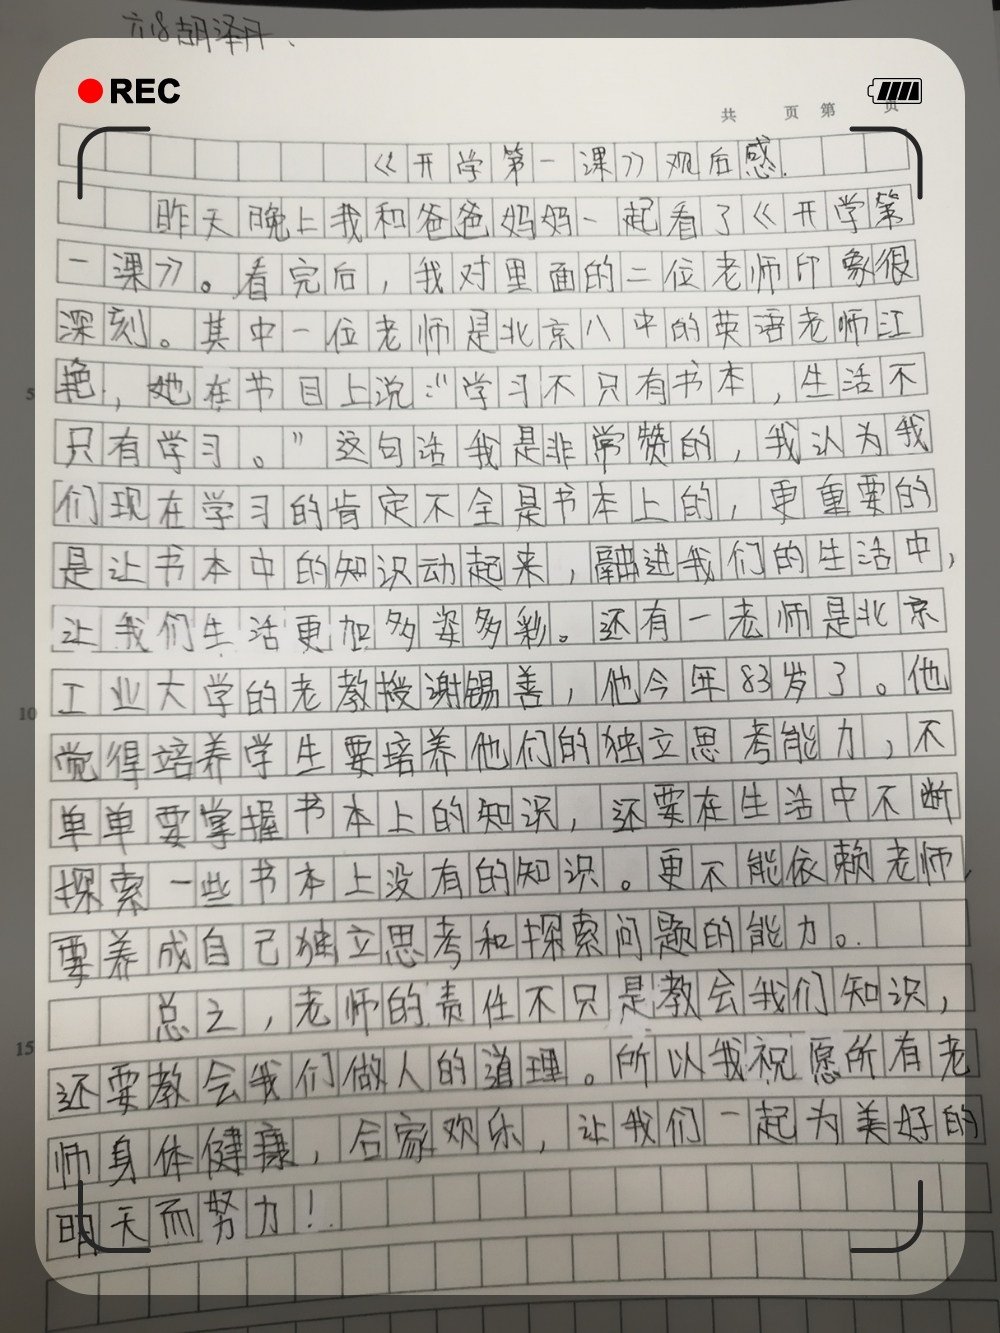 六18胡泽丹、
REC
共 页 第 页
《开学第一课》观后感.
昨天晚上我和爸爸妈妈一起看了《开学第
一课》。看完后,我对里面的二位老师印象很
深刻。其中一位老师是北京八中的英语老师江
艳,她在节目上说:“学习不只有书本,生活不
5
只有学习。”这句话我是非常赞的,我认为我
们现在学习的肯定不全是书本上的,更重要的
是让书本中的知识动起来,融进我们的生活中,
让我们生活更加多姿多彩。还有一老师是北京
工业大学的老教授谢锡善,他今年83岁了。他
10
觉得培养学生要培养他们的独立思考能力,不
单单要掌握书本上的知识,还要在生活中不断
探索一些书本上没有的知识。更不能依赖老师,
要养成自己独立思考和探索问题的能力。
总之,老师的责任不只是教会我们知识,
15
还要教会我们做人的道理。所以我祝愿所有老
师身体健康,合家欢乐,让我们一起为美好的
明天而努力!